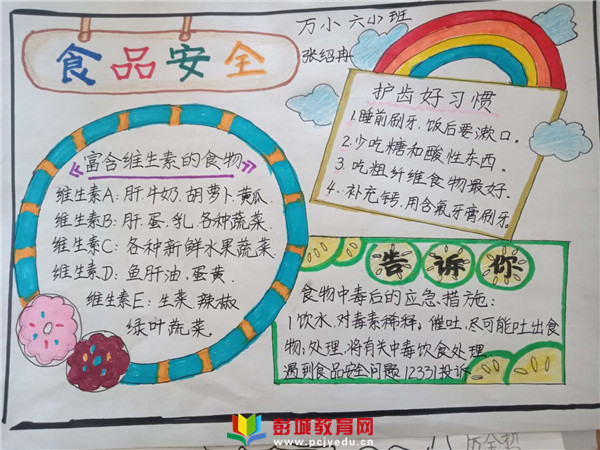 食品安全
万小 六小班
张绍冉
护齿好习惯
1.睡前刷牙,饭后要漱口。
2.少吃糖和酸性东西。
3.吃粗纤维食物最好。
4.补充钙,用含氟牙膏刷牙。
《富含维生素的食物》
维生素A:肝.牛奶.胡萝卜.黄瓜.
维生素B:肝.蛋.乳.各种蔬菜.
维生素C:各种新鲜水果蔬菜.
维生素D:鱼肝油.蛋黄.
维生素E:生菜.辣椒
绿叶蔬菜。
告诉你
食物中毒后的应急措施:
1饮水,对毒素稀释;催吐,尽可能吐出食
物;处理,将有关中毒饮食处理
遇到食品安全问题12331投诉
彭城教育网
www.pcjyedu.cn